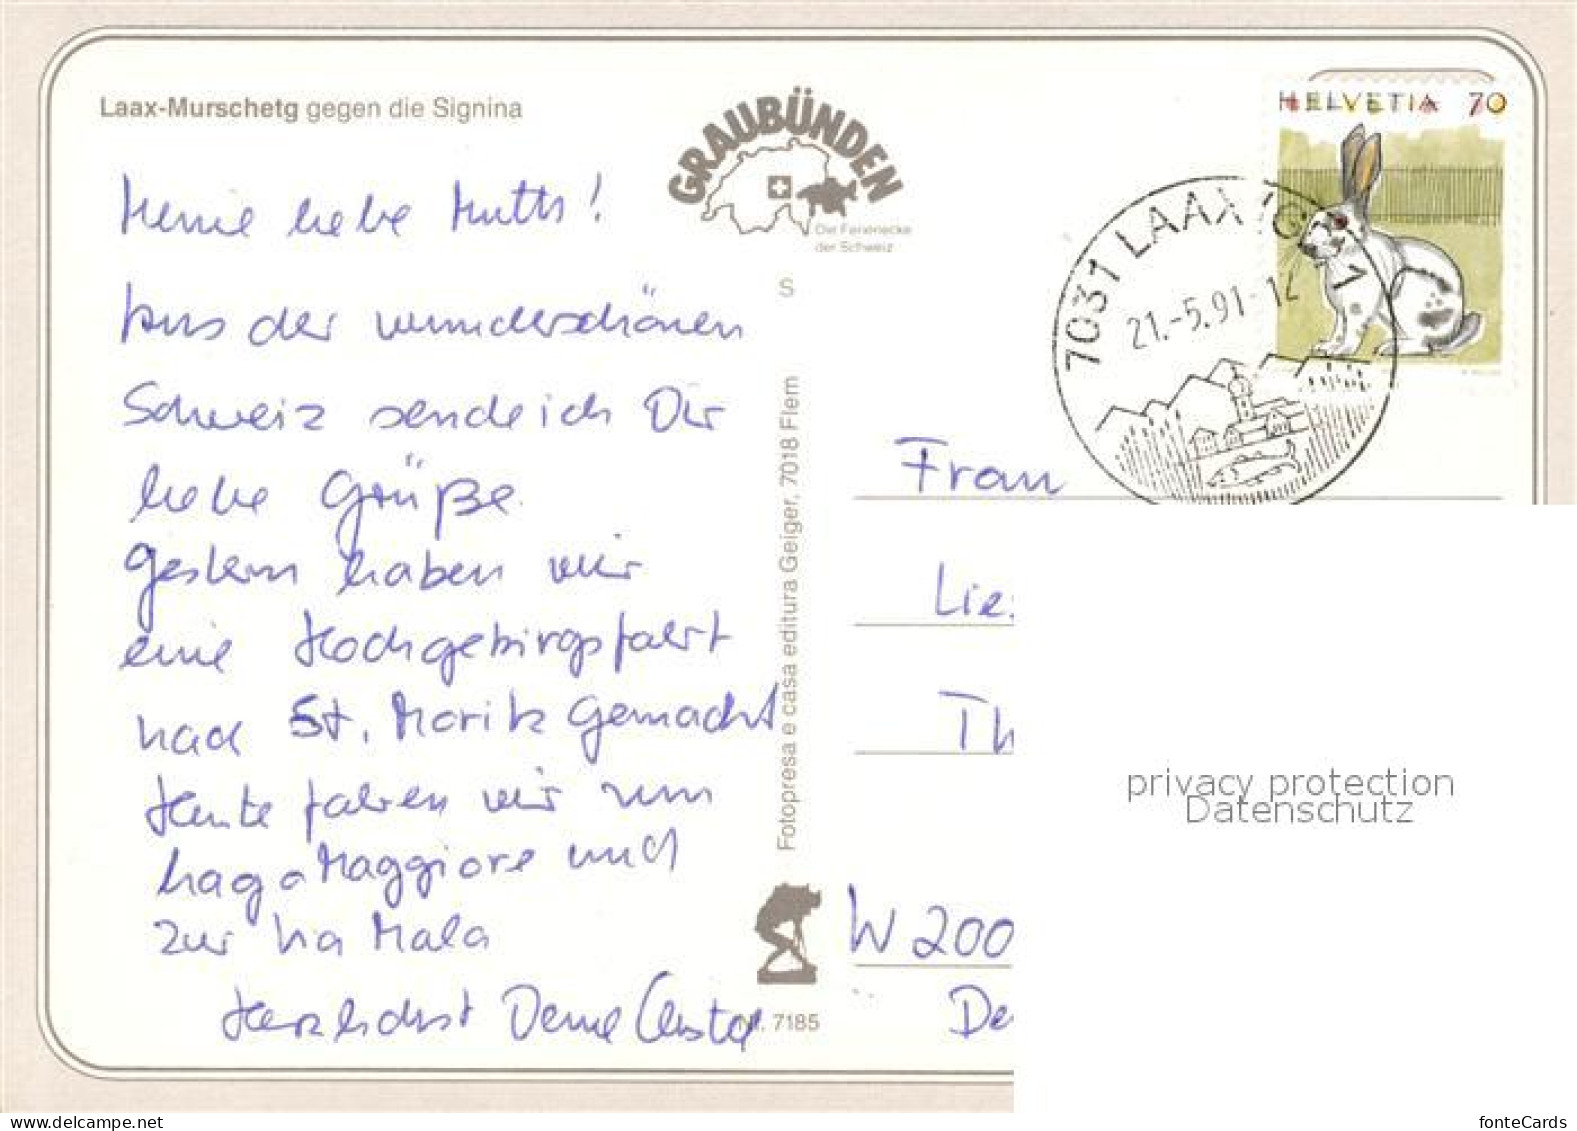 Laax-Murschetg gegen die Signina
GRAUBÜNDEN
Die Ferienecke
der Schweiz
S
HELVETIA 70
7031 LAAX GR 1
21.-5.91-12
Meine liebe Mutti!
Aus der wunderschönen
Schweiz sende ich Dir
liebe Grüße.
Gestern haben wir
eine Hochgebirgsfahrt
nach St. Moritz gemacht
Heute fahren wir zum
Lago Maggiore und
zur Via Mala
Herzlichst Deine Christel
Fotopresa e casa editura Geiger, 7018 Flem
Nr. 7185
Frau
Lie
Th
W 200
De
privacy protection
Datenschutz
www.delcampe.net
fonteCards